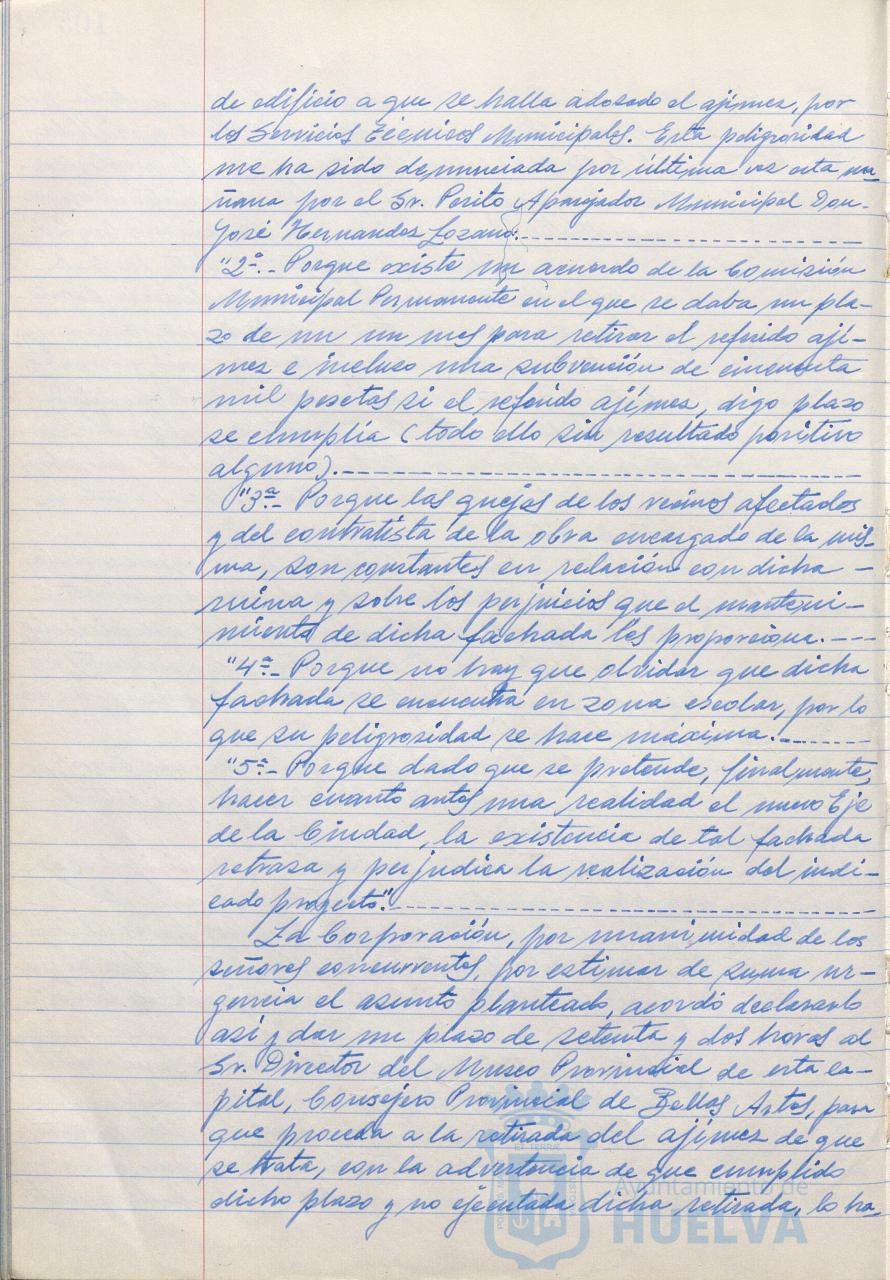 de edificio a que se halla adosado el ajímez, por
los Servicios Técnicos Municipales. Esta peligrosidad
me ha sido denunciada por última vez esta ma-
ñana por el Sr. Perito Aparejador Municipal Don
José Hernandez Lozano.
"2ª.- Porque existe un acuerdo de la Comisión
Municipal Permanente en el que se daba un pla-
zo de un un mes para retirar el referido ají-
mez e incluso una subvención de cincuenta
mil pesetas si el referido ajímez, digo plazo
se cumplía (todo ello sin resultado positivo
alguno).
"3ª.- Porque las quejas de los vecinos afectados
y del contratista de la obra encargado de la mis-
ma, son constantes en relación con dicha -
ruina y sobre los perjuicios que el manteni-
miento de dicha fachada les proporciona. ---
"4ª.- Porque no hay que olvidar que dicha
fachada se encuentra en zona escolar, por lo
que su peligrosidad se hace máxima.
"5ª.- Porque dado que se pretende, finalmente,
hacer cuanto antes una realidad el nuevo Eje
de la Ciudad, la existencia de tal fachada
retrasa y perjudica la realización del indi-
cado proyecto."
La Corporación, por unanimidad de los
señores concurrentes, por estimar de suma ur-
gencia el asunto planteado, acordó declararlo
así y dar un plazo de setenta y dos horas al
Sr. Director del Museo Provincial de esta ca-
pital, Consejero Provincial de Bellas Artes, para
que proceda a la retirada del ajímez de que
se trata, con la advertencia de que cumplido
dicho plazo y no ejecutada dicha retirada, lo ha-
Ayuntamiento de
HUELVA